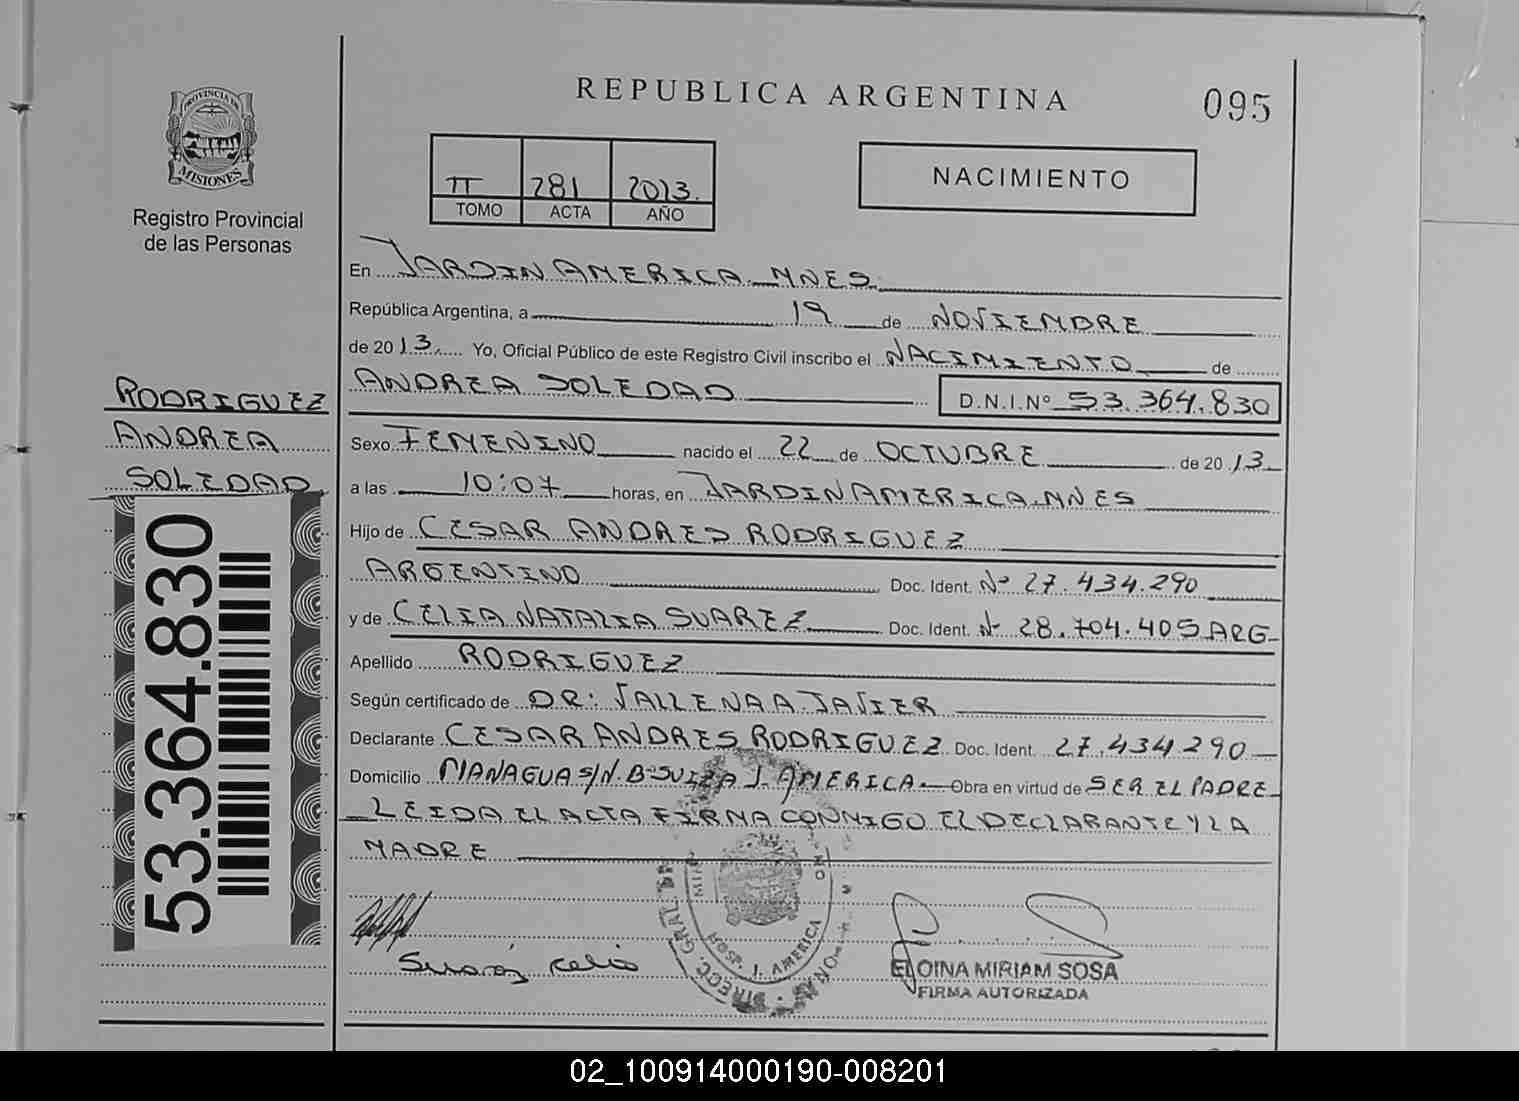 REPUBLICA ARGENTINA
095
PROVINCIA DE
MISIONES
Registro Provincial
de las Personas
II 281 2013.
TOMO ACTA AÑO
NACIMIENTO
En JARDIN AMERICA. MNES.
República Argentina, a 19 de NOVIEMBRE
de 2013. Yo, Oficial Público de este Registro Civil inscribo el NACIMIENTO de
ANDREA SOLEDAD D.N.I.Nº 53.364.830
RODRIGUEZ
ANDREA
SOLEDAD
53.364.830
Sexo FEMENINO nacido el 22 de OCTUBRE de 2013
a las 10:07 horas, en JARDIN AMERICA. MNES
Hijo de CESAR ANDRES RODRIGUEZ
ARGENTINO Doc. Ident. Nº 27.434.290
y de CELIA NATALIA SUAREZ Doc. Ident. Nº 28.704.405 ARG
Apellido RODRIGUEZ
Según certificado de DR: VALLENA A. JAVIER
Declarante CESAR ANDRES RODRIGUEZ Doc. Ident. 27.434.290
Domicilio MANAGUA S/N. Bº SUIZA J. AMERICA. Obra en virtud de SER EL PADRE
LEIDA EL ACTA FIRMA CONMIGO EL DECLARANTE Y LA
MADRE
Suarez Celia
HOSP. J. AMERICA
DIRECC. GRAL.
ELOINA MIRIAM SOSA
FIRMA AUTORIZADA
02_100914000190-008201